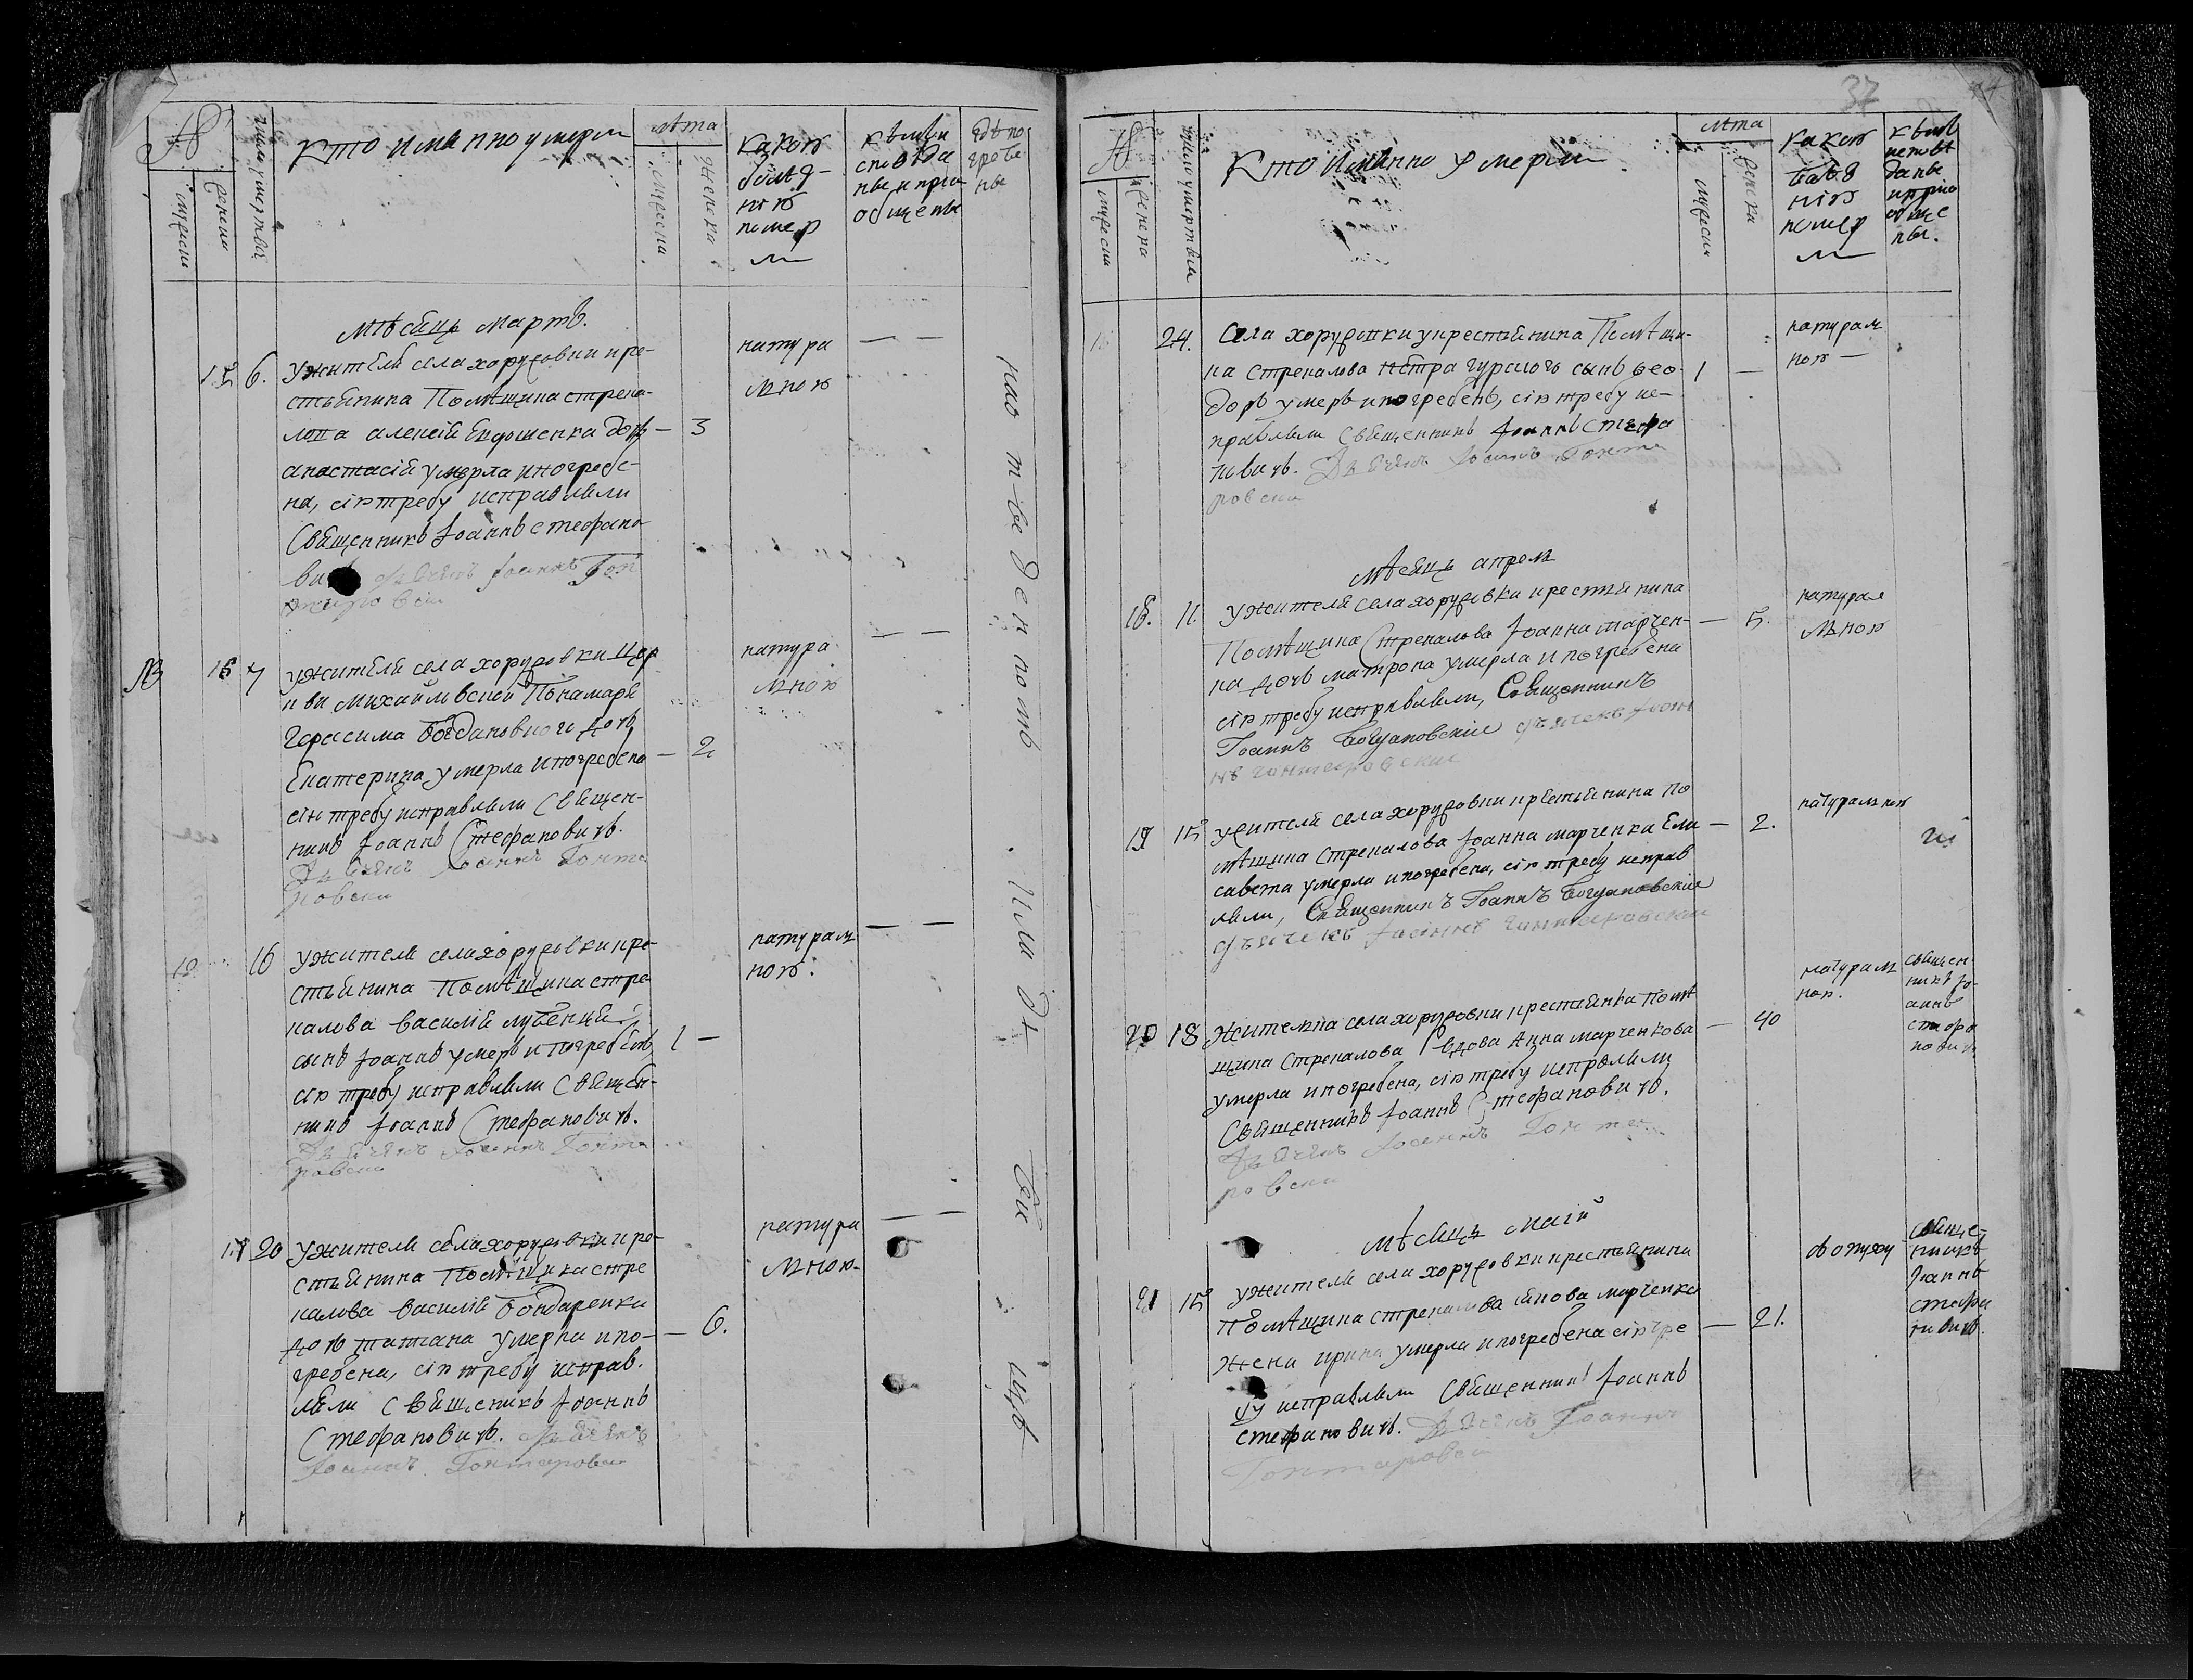 №
мужеска
женска
число умертвій
Кто именно умерли
лѣта
мужеска
женска
какою
болѣз-
нію
померли
кѣмъ и
сповѣда
ны и прио
общены
гдѣ по
гребе
ны
Мѣсяцъ Мартъ.
15 6. У жителя села хоружовки кре-
стьянина Помѣщика стрека-
лова алексія Евдошенка дочь — 3
анастасія умерла и погребе-
на, сію требу исправляли
Священникъ Іоаннъ стефано
вичъ дьячекъ Іоаннъ Гон
натура
льною
— —
16 7 У жителя села хоружовки Цер
кви михайловской Понамаря
Герасима Богдановского дочь
Екатерина умерла и погребена — 2
сію требу исправляли Священ-
никъ Іоаннъ Стефановичъ.
Дьячекъ Іоаннъ Гонта
ровски
натура
льною
— —
12 16 У жителя села хоружовки кре-
стьянина Помѣщика стре-
калова василія
сынъ Іоаннъ умеръ и погребенъ 1 —
сію требу исправляли Священ-
никъ Іоаннъ Стефановичъ.
Дьячекъ Іоаннъ Гонта
ровски
натураль
ною.
— —
17 20 У жителя села хоружовки кре-
стьянина Помѣщика стре
калова василія Бондаренка
дочь татиана умерла и по- — 6.
гребена, сію требу исправ.
ляли Священикъ Іоаннъ
Стефановичъ. Дьячекъ
Іоаннъ Гонтаровски
натура
льною.
— —
на от ве ден по мъ
кла д би щѣ
37
№
мужеска
женска
число умертвій
Кто именно умерли
лѣта
мужеска
женска
какою
болѣз
нію
померли
кѣмъ
исповѣ
даны
и прио
обще
ны.
13 24. Села хоружовки у крестьянина Помѣщи-
ка Стрекалова петра гурского сынъ Фео- 1 —
доръ умеръ и погребенъ, сію требу ис-
правляли Священникъ Іоаннъ Стефа
новичъ. Дьячекъ Іоаннъ Гонта
ровски
натураль
ною —
Мѣсяцъ апрель
18. 11. У жителя села хоружовки крестьянина
Помѣщика Стрекалова Іоанна марчен- — 5.
ка дочь матрона умерла и погребена
сію требу исправляли, Священникъ
Іоаннъ Богдановскій дьячекъ Іоан
нъ гонтаровский
натура
льною
19 15 У жителя села хоружовки крестьянина По
мѣщика Стрекалова Іоанна марченка Ели — 2.
савета умерла и погребена, сію требу исправ
ляли, Священникъ Іоаннъ Богдановскій
дьячекъ Іоаннъ гонтаровский
натуральною
20 18 Жителка села хоружовки крестьянка Помѣ
щика Стрекалова вдова Анна марченкова — 40
умерла и погребена, сію требу исправляли
Священникъ Іоаннъ Стефановичъ.
Дьячекъ Іоаннъ Гонта
ровски
натураль
ною.
священ
никъ Іо-
аннъ
стефа
новичъ
Мѣсяцъ маій
21 15 У жителя села хоружовки крестьянина
Помѣщика стрекалова якова марченка
жена ирина умерла и погребена сію тре — 21.
бу исправляли Священникъ Іоаннъ
стефановичъ. Дьячекъ Іоаннъ
Гонтаровски
священ
никъ
Іоаннъ
стефа
новичъ.